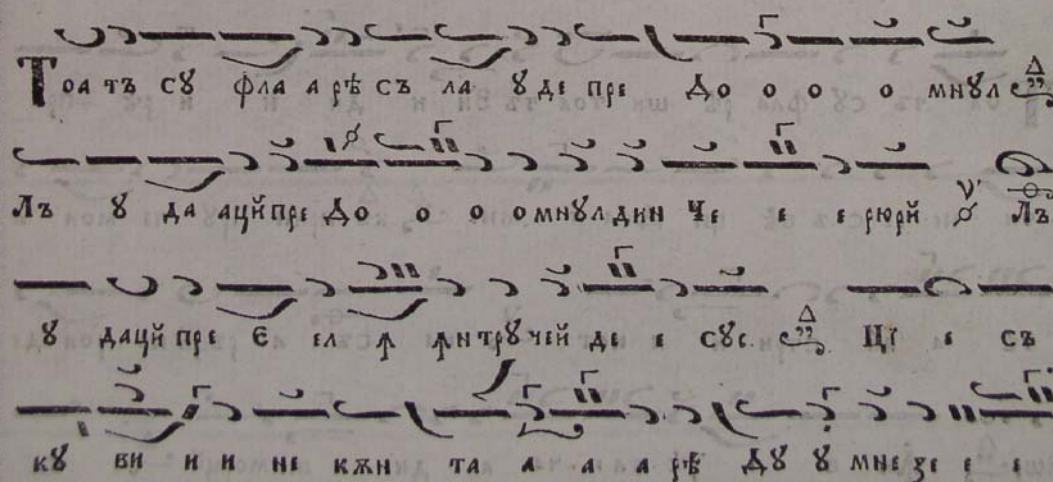 Тоа тъ сꙋ фла а рѣ съ ла ꙋ де пре До о о о мнꙋл
Лъ ꙋ да ацй пре До о о о мнꙋл дин Че е е рюрй Лъ
ꙋ дацй пре Є ел ꙟ ꙟн трꙋ чей де е сꙋс. Цїе е съ
кꙋ ви и и не кѫн та а а а рѣ Дꙋ ꙋ мне зе е е